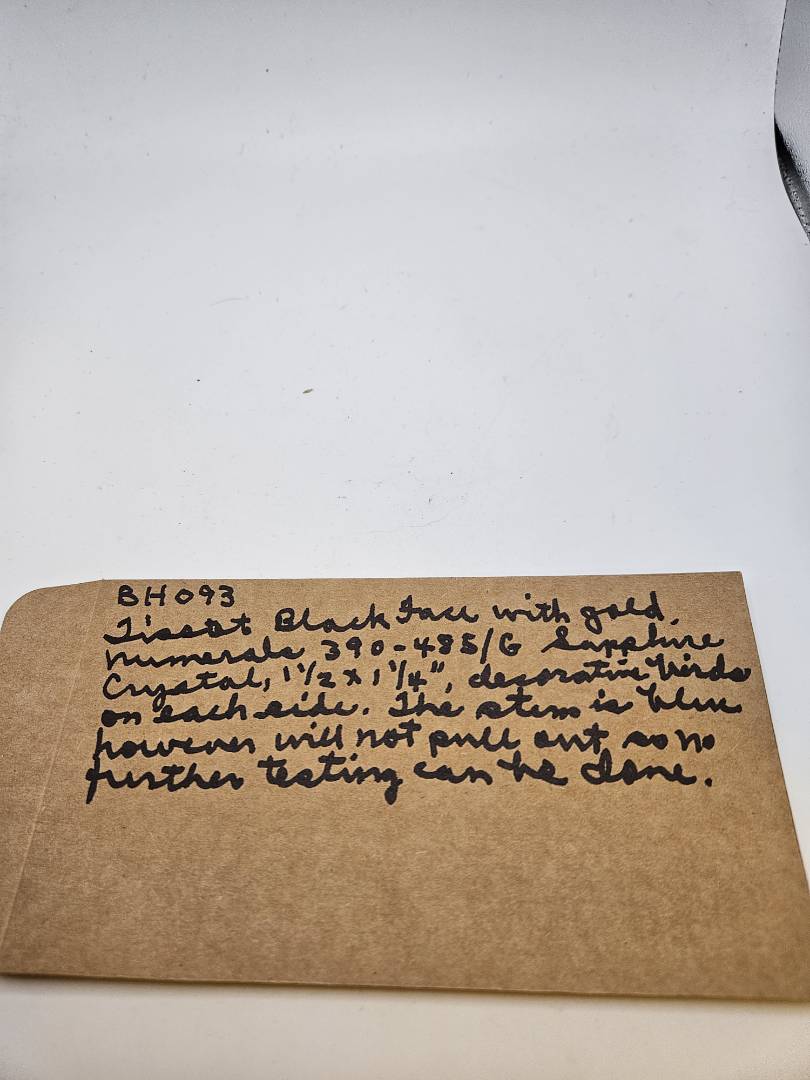 BH093
Tissot Black face with gold
numerals 390-485/G Sapphire
Crystal, 1 1/2 x 1 1/4", decorative birds
on each side. The stem is blue
however will not pull out so no
further testing can be done.